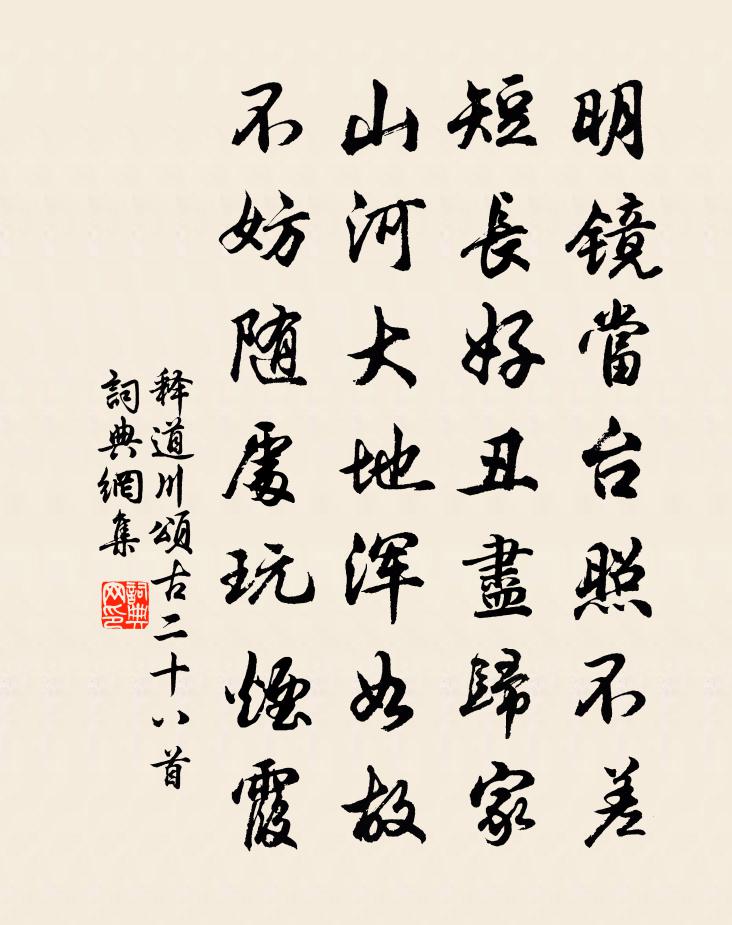 明镜當台照不差
短長好丑盡歸家
山河大地浑如故
不妨随處玩煙霞
释道川頌古二十八首
詞典網集
詞典网印